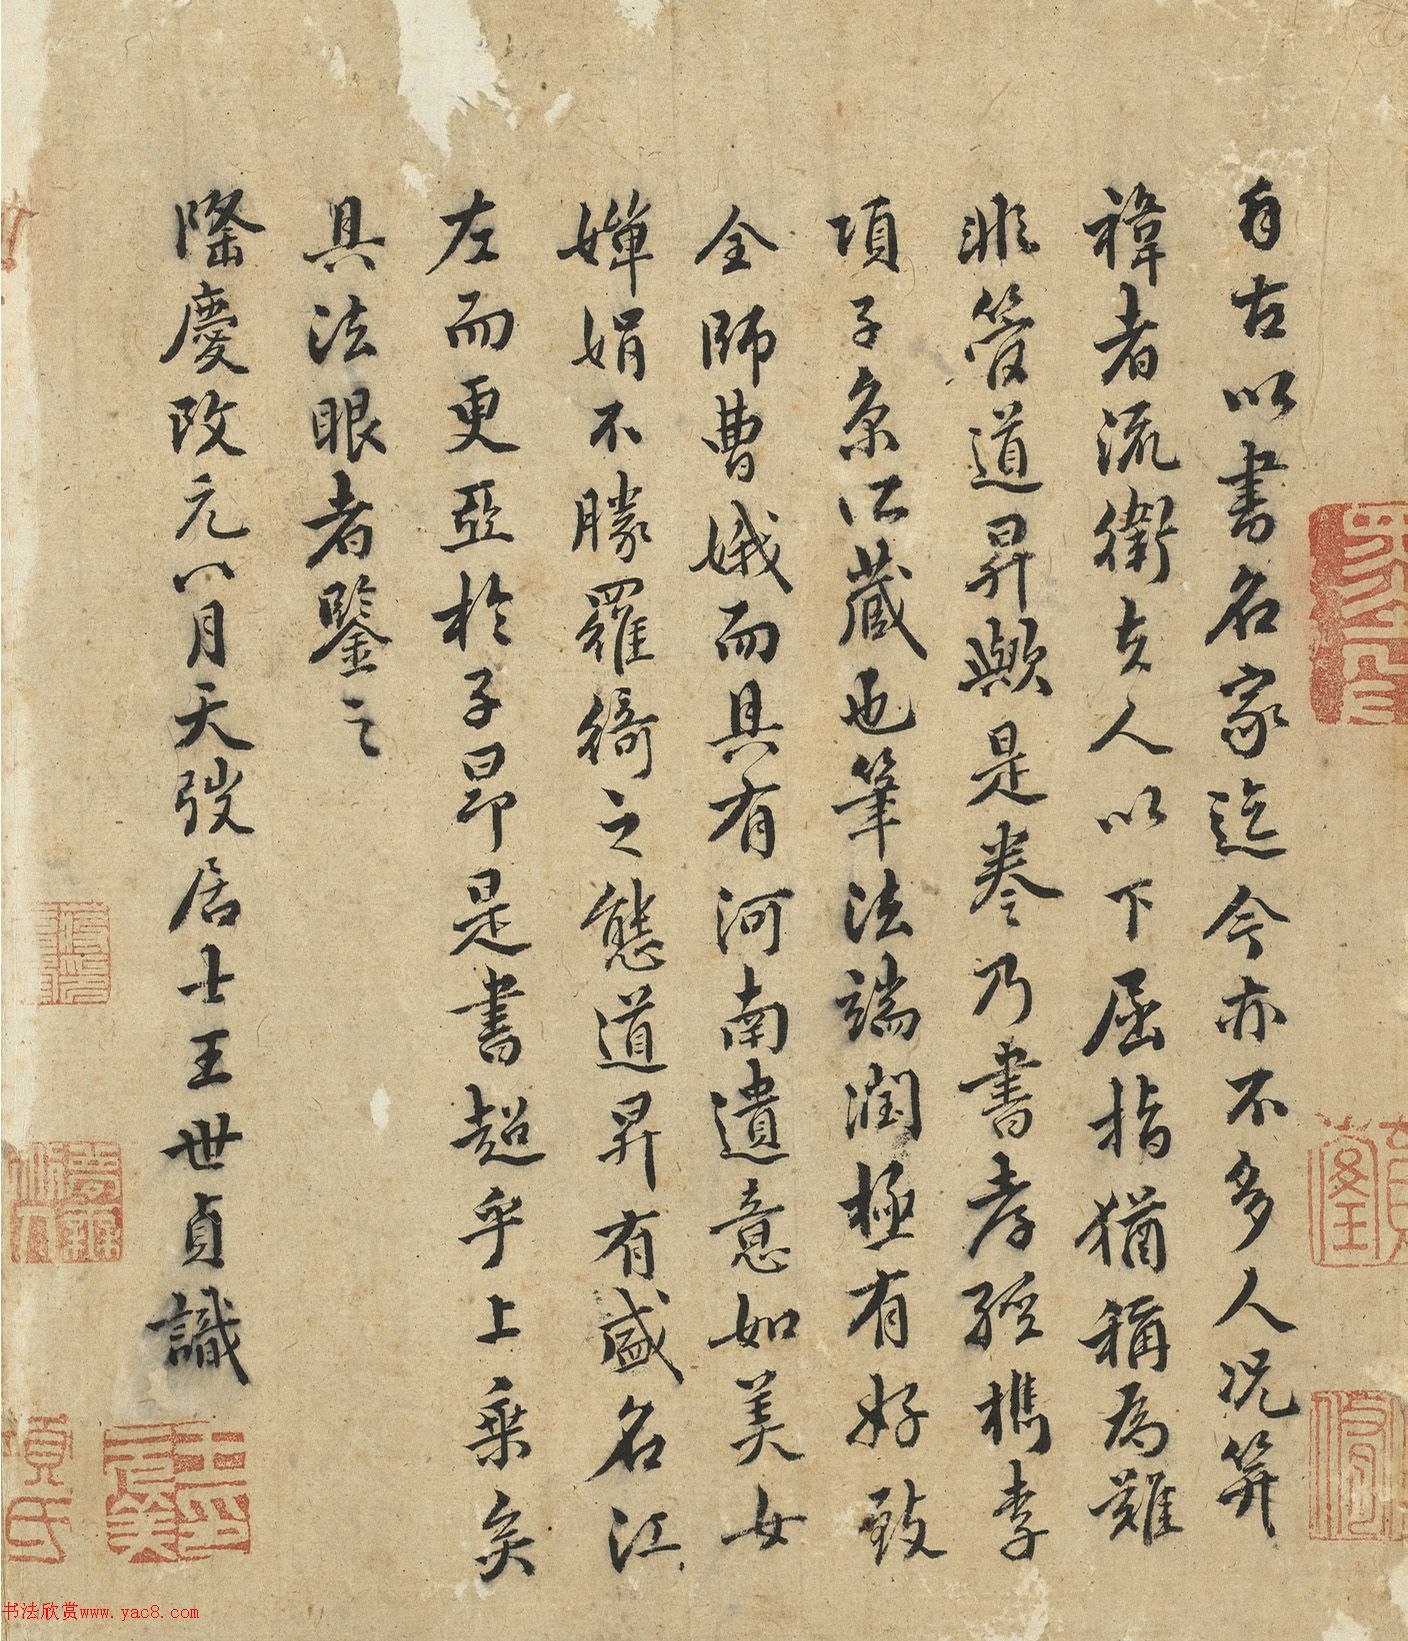 自古以書名家迄今亦不多人况笄
禕者流衛夫人以下屈指猶稱為難
非管道昇歟是卷乃書孝經檇李
項子京所藏也筆法端潤極有好致
全師曹娥而具有河南遺意如美女
嬋娟不勝羅綺之態道昇有盛名江
左而更亞於子昂是書超乎上乘矣
具法眼者鑒之
隆慶改元八月天弢居士王世貞識
王元美印
項氏
书法欣赏www.yac8.com